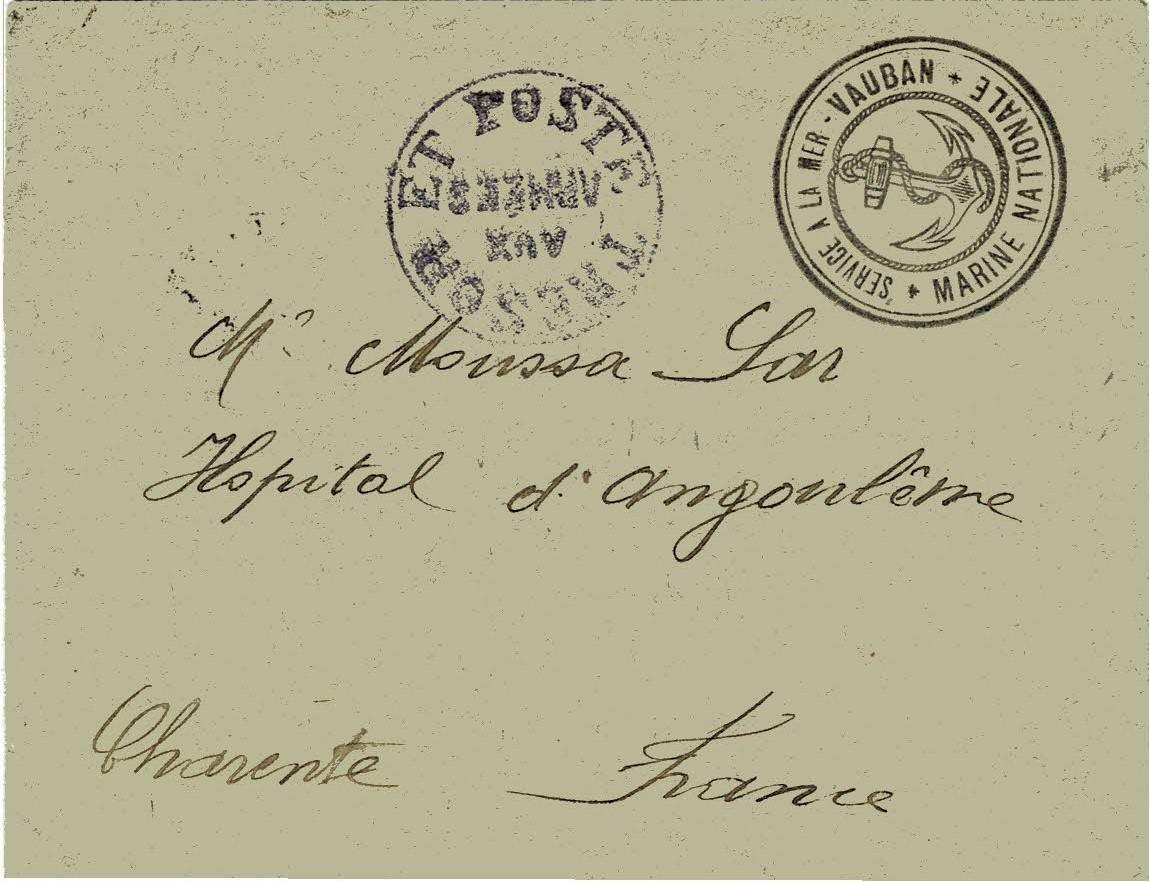 TRESOR ET POSTES
AUX
ARMÉES
SERVICE A LA MER - VAUBAN * MARINE NATIONALE *
Mr Moussa Sar
Hopital d'Angoulême
Charente France